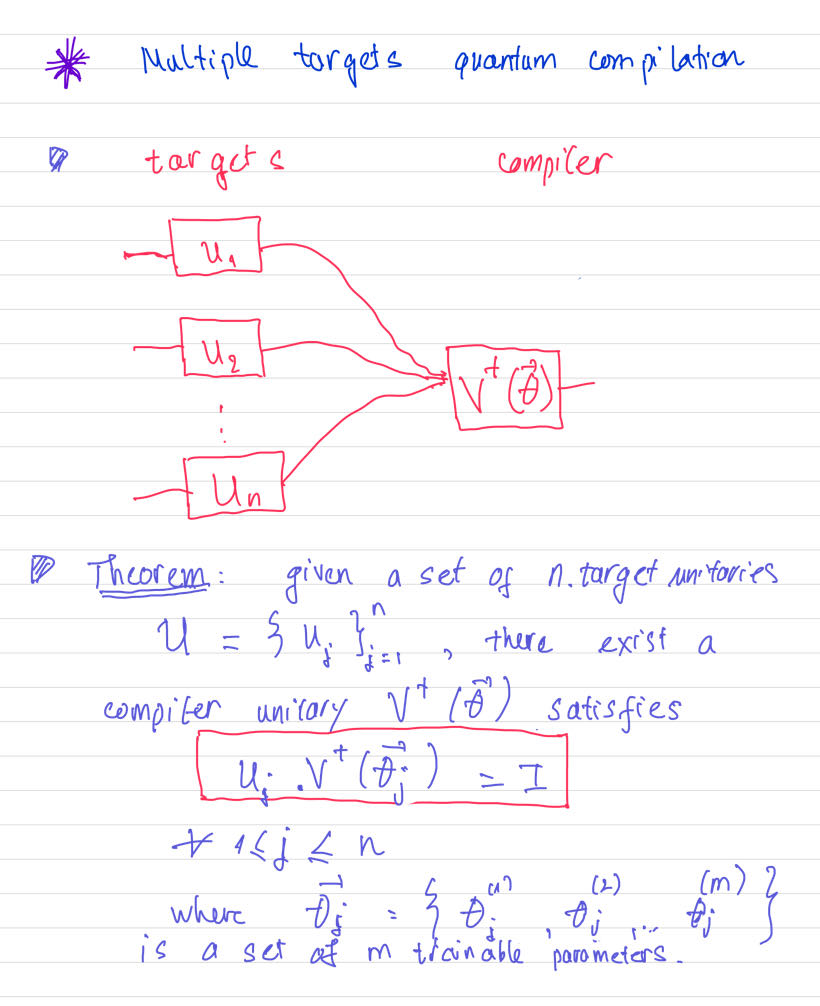 * Multiple targets quantum compilation
targets compiler
U₁
U₂
⋮
Uₙ
V†(θ⃗)
Theorem: given a set of n.target unitaries
U = { Uⱼ }ⁿⱼ₌₁ , there exist a
compiler unitary V†(θ⃗) satisfies
Uⱼ . V†(θ⃗ⱼ) = I
∀ 1 ≤ j ≤ n
where θ⃗ⱼ = { θⱼ⁽¹⁾, θⱼ⁽²⁾, ... θⱼ⁽ᵐ⁾ }
is a set of m trainable parameters.